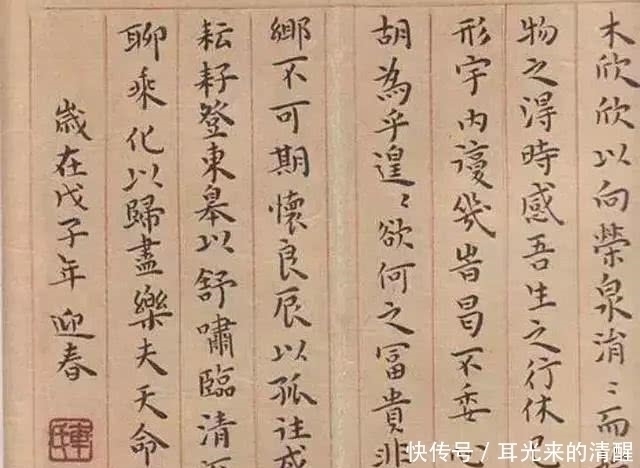 木欣欣以向榮泉涓〻而
物之得時感吾生之行休
形宇内幾旹曷不委
胡為乎遑〻欲何之冨貴非
鄉不可期懷良辰以孤往或
耘耔登東皋以舒嘯臨清
聊乘化以歸盡樂夫天命
歲在戊子年迎春
快传号 / 耳光来的清醒